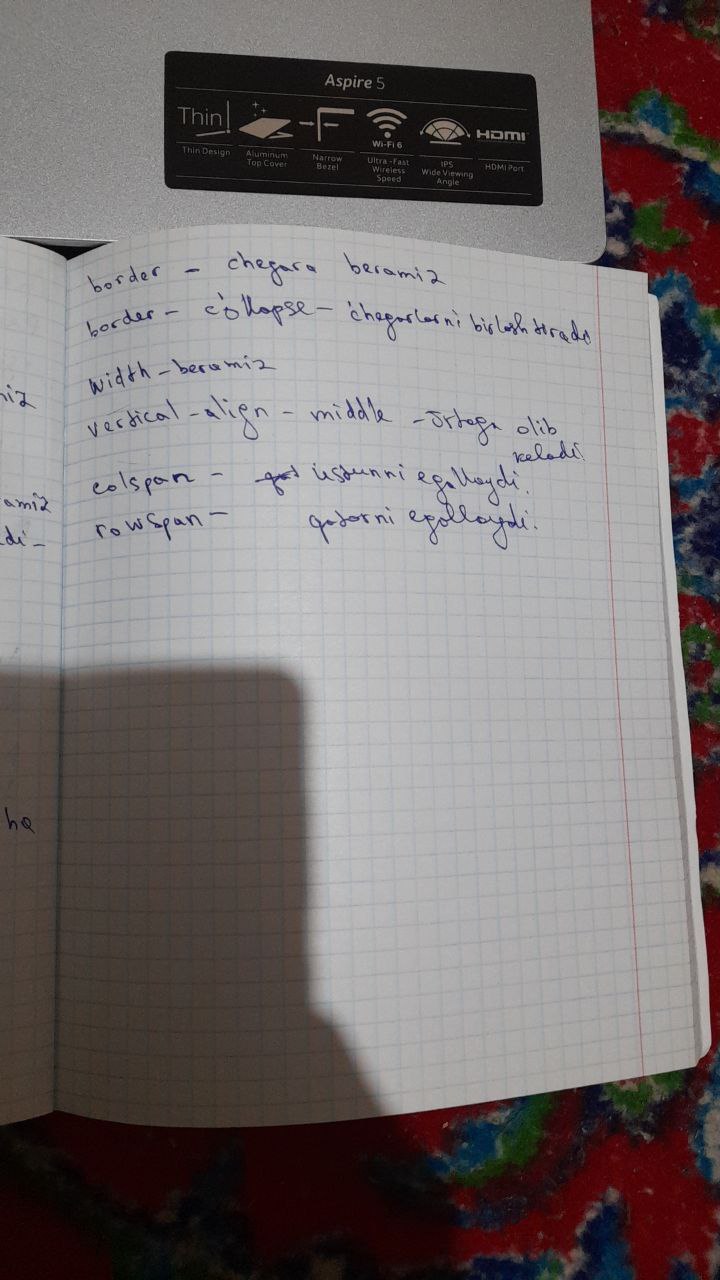 Aspire 5
Thin
Wi-Fi 6
HDMI
Thin Design
Aluminum Top Cover
Narrow Bezel
Ultra-Fast Wireless Speed
IPS Wide Viewing Angle
HDMI Port
border - chegara beramiz
border - collapse - chegarlarni birlashtiradi
width - beramiz
vertical - align - middle - o'rtaga olib
keladi.
colspan - ustunni egallaydi.
rowspan - qatorni egallaydi.
amiz
di -
ha